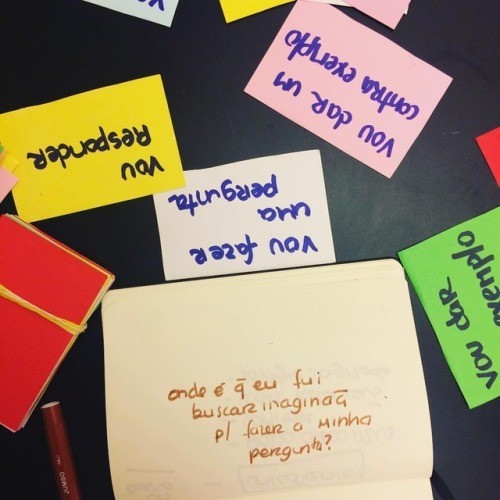 VOU DAR UM
contra exemplo
VOU
RESPONDER
VOU fazer
uma
pergunta
VOU DAR
exemplo
onde é q̃ eu fui
buscar inaginaç̃
p/ fazer a minha
pergunta?
JUMBO